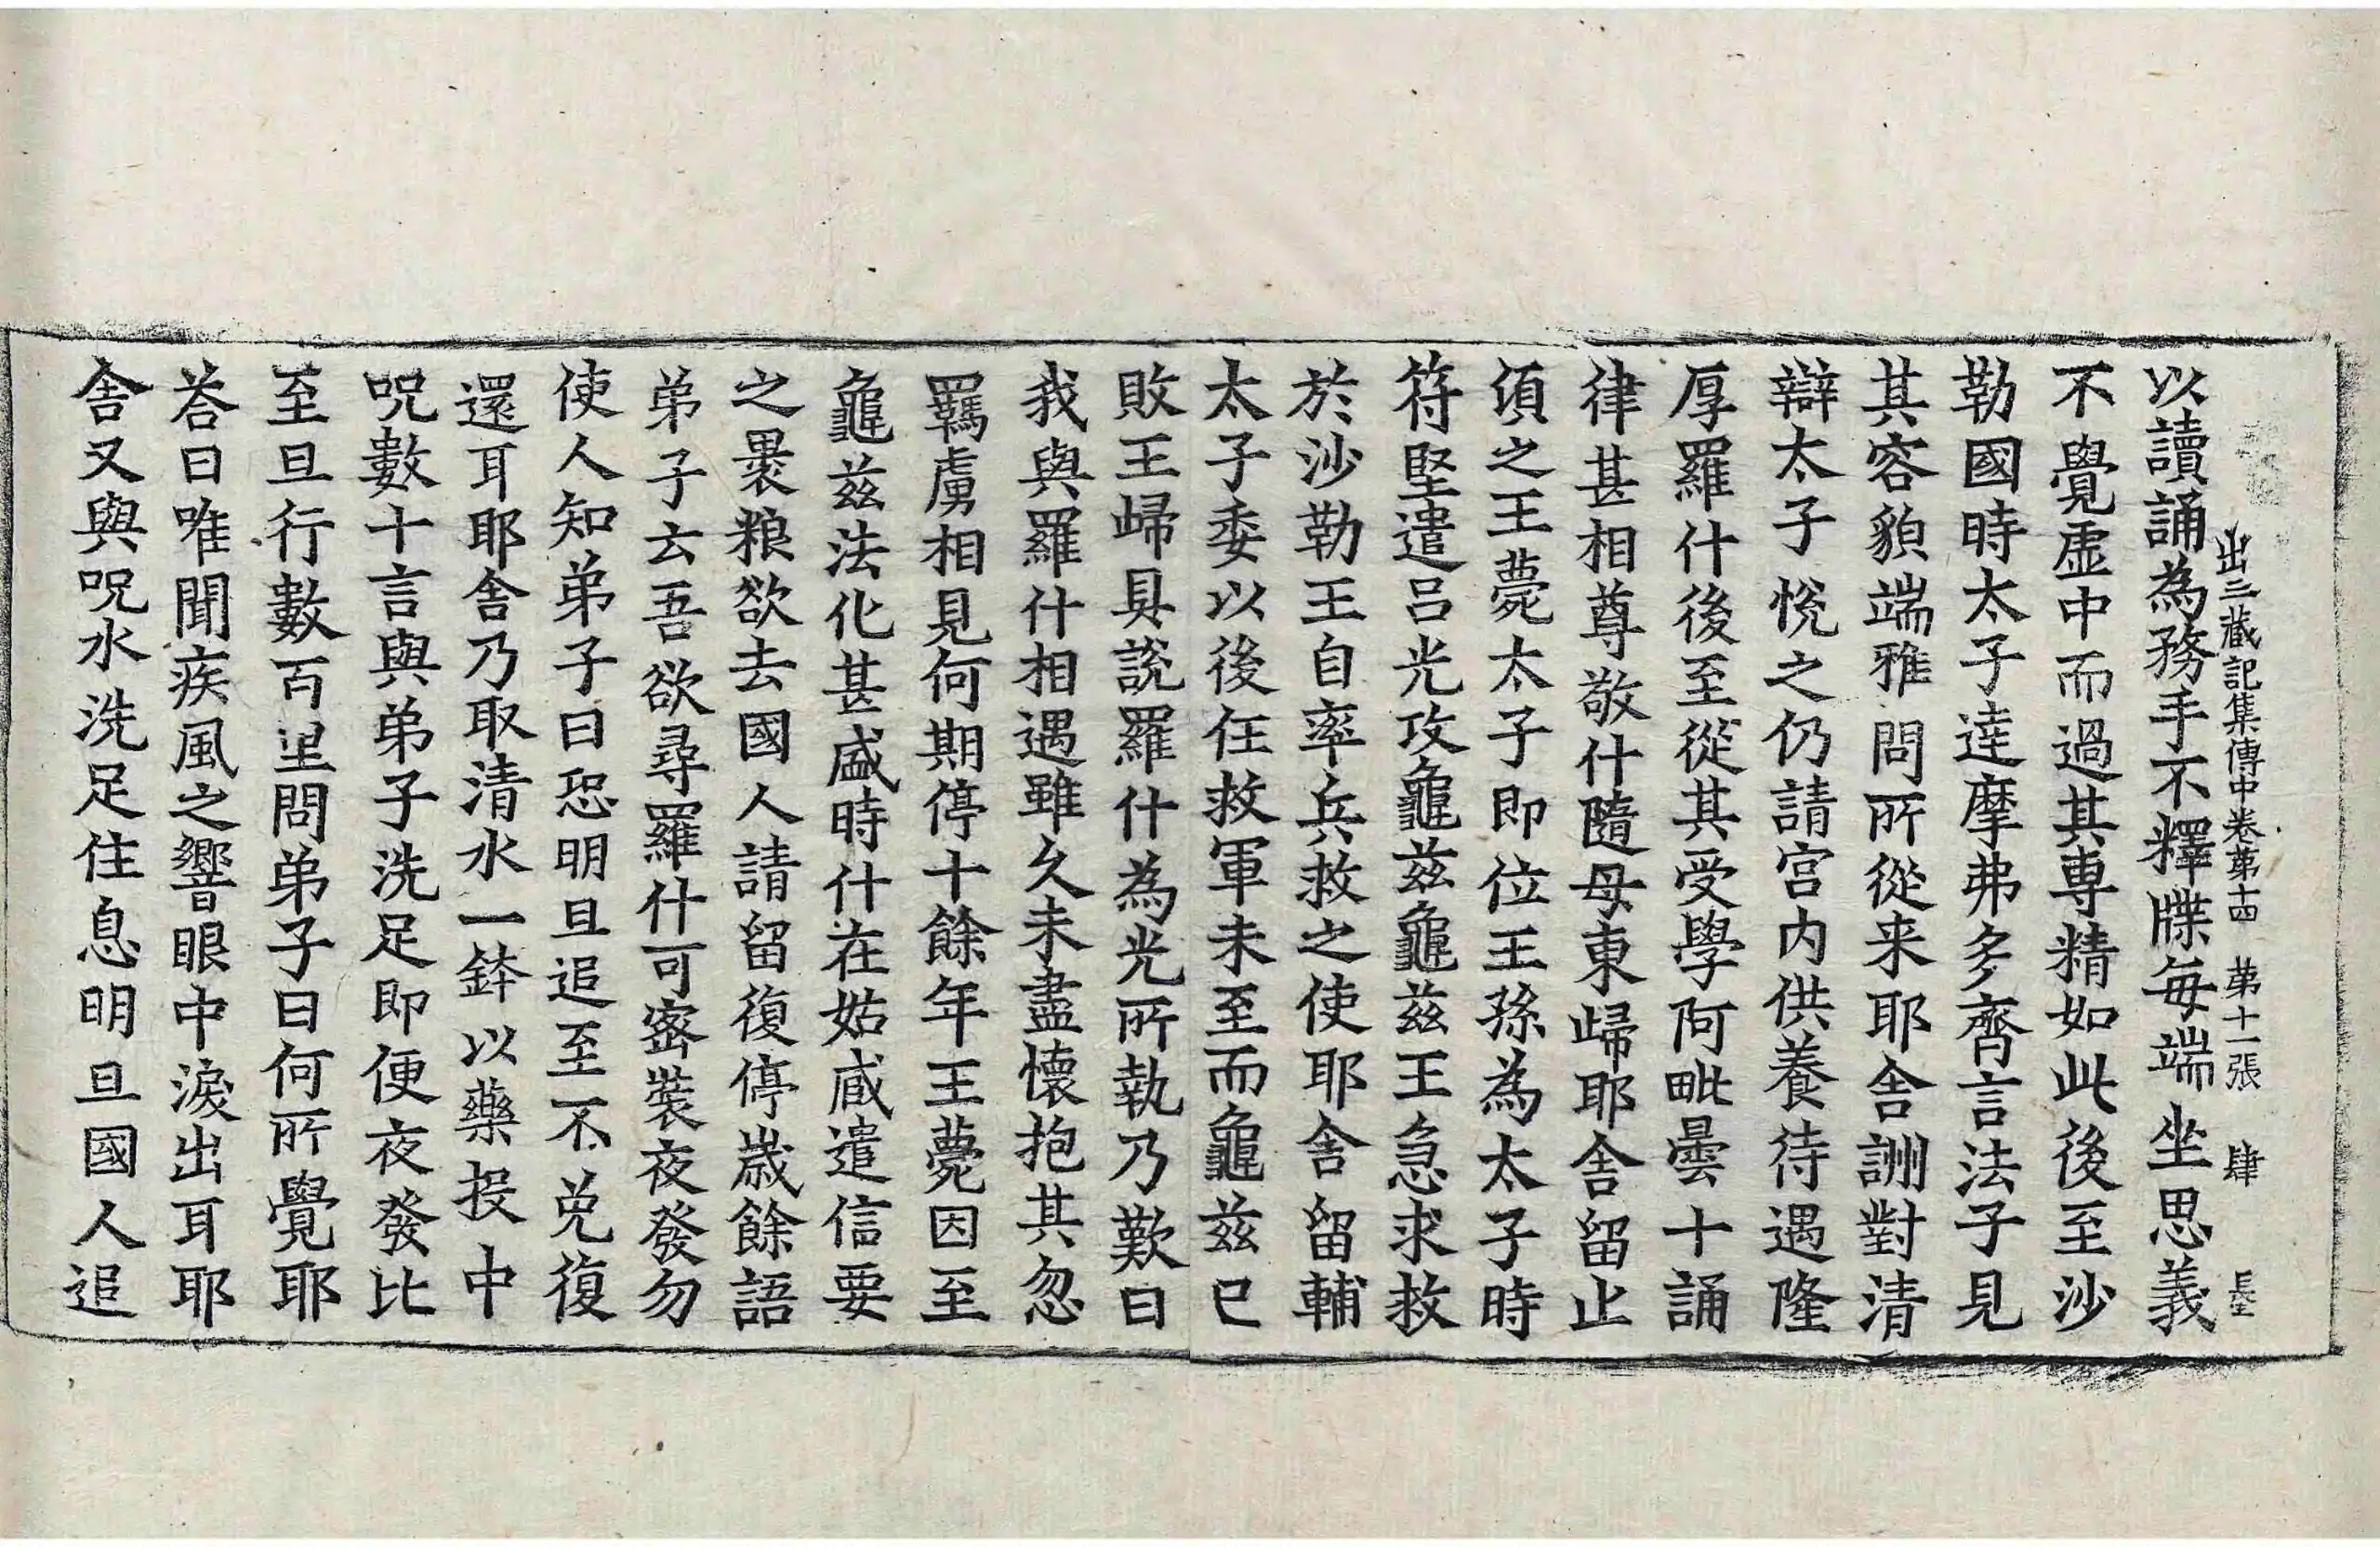 出三藏記集傳中卷第十四　第十一張　肆
以讀誦為務手不釋牒每端坐思義
不覺虛中而過其專精如此後至沙
勒國時太子達摩弗多齊言法子見
其容貌端雅問所從来耶舍詶對清
辯太子恱之仍請宮内供養待遇隆
厚羅什後至從其受學阿毗曇十誦
律甚相尊敬什隨母東歸耶舍留止
湏之王薨太子即位王孫為太子時
符堅遣吕光攻龜茲龜茲王急求救
於沙勒王自率兵救之使耶舍留輔
太子委以後任救軍未至而龜茲已
敗王歸具說羅什為光所執乃歎曰
我與羅什相遇雖久未盡懷抱其忽
羈虜相見何期停十餘年王薨因至
龜茲法化甚盛時什在姑臧遣信要
之褁粮欲去國人請留復停歲餘語
弟子云吾欲尋羅什可密裝夜發勿
使人知弟子曰恐明旦追至不免復
還耳耶舍乃取清水一鉢以藥投中
呪數十言與弟子洗足即便夜發比
至旦行數百里問弟子曰何所覺耶
荅曰唯聞疾風之響眼中淚出耳耶
舍又與呪水洗足住息明旦國人追